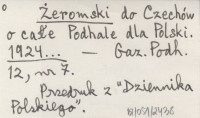 ° Żeromski do Czechów
o całe Podhale dla Polski.
1924... — Gaz. Podh.
12, nr 7.
Przedruk z "Dziennika
Polskiego".